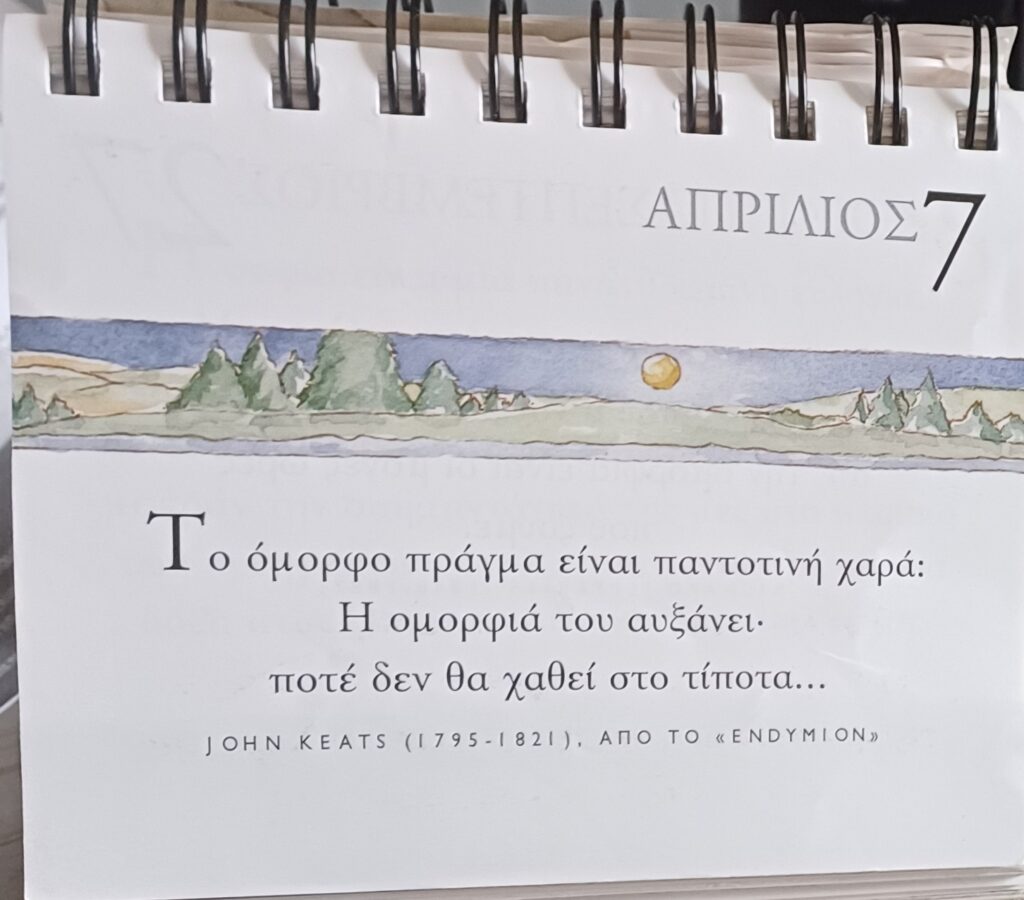 ΑΠΡΙΛΙΟΣ 7
Το όμορφο πράγμα είναι παντοτινή χαρά:
Η ομορφιά του αυξάνει·
ποτέ δεν θα χαθεί στο τίποτα...
JOHN KEATS (1795-1821), ΑΠΟ ΤΟ «ENDYMION»